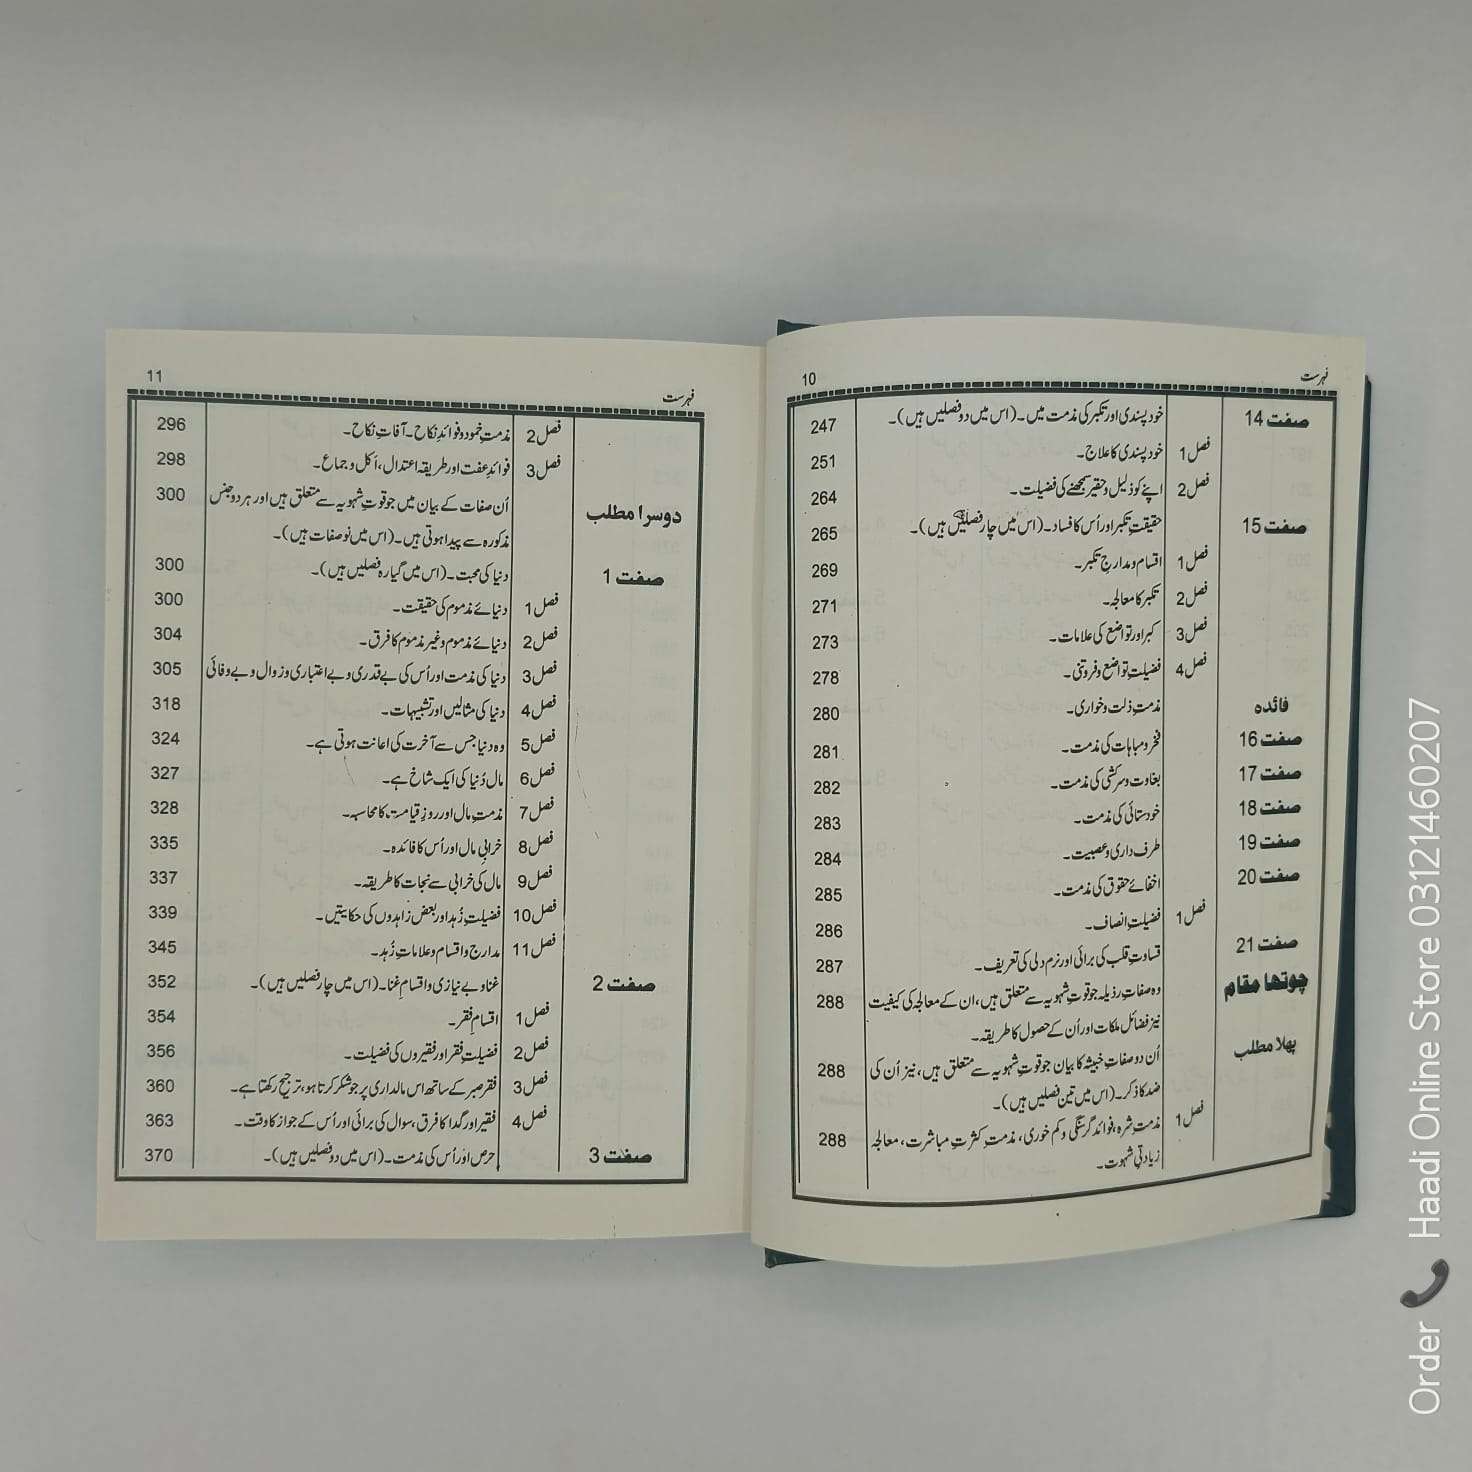 فہرست 10
صفت 14 خود پسندی اور تکبر کی مذمت میں۔ (اس میں دو فصلیں ہیں)۔ 247
فصل 1 خود پسندی کا علاج۔ 251
فصل 2 اپنے کو ذلیل و حقیر سمجھنے کی فضیلت۔ 264
صفت 15 حقیقتِ تکبر اور اُس کا فساد۔ (اس میں چار فصلیں ہیں)۔ 265
فصل 1 اقسام و مدارج تکبر۔ 269
فصل 2 تکبر کا معالجہ۔ 271
فصل 3 کبر اور تواضع کی علامات۔ 273
فصل 4 فضیلتِ تواضع و فروتنی۔ 278
فائدہ مذمتِ ذلت و خواری۔ 280
صفت 16 فخر و مباہات کی مذمت۔ 281
صفت 17 بغاوت و سرکشی کی مذمت۔ 282
صفت 18 خودستائی کی مذمت۔ 283
صفت 19 طرف داری و عصبیت۔ 284
صفت 20 اخفائے حقوق کی مذمت۔ 285
فصل 1 فضیلتِ انصاف۔ 286
صفت 21 قساوتِ قلب کی برائی اور نرم دلی کی تعریف۔ 287
چوتھا مقام وہ صفاتِ رذیلہ جو قوتِ شہویہ سے متعلق ہیں، ان کے معالجہ کی کیفیت 288
نیز فضائل ملکات اور اُن کے حصول کا طریقہ۔
پہلا مطلب اُن دو صفاتِ خبیثہ کا بیان جو قوتِ شہویہ سے متعلق ہیں، نیز اُن کی 288
ضد کا ذکر۔ (اس میں تین فصلیں ہیں)۔
فصل 1 مذمتِ شرہ، فوائد گرسنگی و کم خوری، مذمتِ کثرتِ مباشرت، معالجہ 288
زیادتیِ شہوت۔
فہرست 11
فصل 2 مذمتِ خمود و فوائدِ نکاح۔ آفاتِ نکاح۔ 296
فصل 3 فوائدِ عفت اور طریقہ اعتدال، اکل و جماع۔ 298
دوسرا مطلب اُن صفات کے بیان میں جو قوتِ شہویہ سے متعلق ہیں اور ہر دو جنس 300
مذکورہ سے پیدا ہوتی ہیں۔ (اس میں نو صفات ہیں)۔
صفت 1 دنیا کی محبت۔ (اس میں گیارہ فصلیں ہیں)۔ 300
فصل 1 دنیائے مذموم کی حقیقت۔ 300
فصل 2 دنیائے مذموم و غیر مذموم کا فرق۔ 304
فصل 3 دنیا کی مذمت اور اُس کی بے قدری و بے اعتباری و زوال و بے وفائی 305
فصل 4 دنیا کی مثالیں اور تشبیہات۔ 318
فصل 5 وہ دنیا جس سے آخرت کی اعانت ہوتی ہے۔ 324
فصل 6 مال دُنیا کی ایک شاخ ہے۔ 327
فصل 7 مذمتِ مال اور روزِ قیامت کا محاسبہ۔ 328
فصل 8 خرابیِ مال اور اُس کا فائدہ۔ 335
فصل 9 مال کی خرابی سے نجات کا طریقہ۔ 337
فصل 10 فضیلتِ زُہد اور بعض زاہدوں کی حکایتیں۔ 339
فصل 11 مدارج و اقسام و علاماتِ زُہد۔ 345
صفت 2 غنا و بے نیازی و اقسامِ غنا۔ (اس میں چار فصلیں ہیں)۔ 352
فصل 1 اقسامِ فقر۔ 354
فصل 2 فضیلتِ فقر اور فقیروں کی فضیلت۔ 356
فصل 3 فقر صبر کے ساتھ اس مالداری پر جو شکر کرتا ہو، ترجیح رکھتا ہے۔ 360
فصل 4 فقیر اور گدا کا فرق، سوال کی برائی اور اُس کے جواز کا وقت۔ 363
صفت 3 حرص اور اُس کی مذمت۔ (اس میں دو فصلیں ہیں)۔ 370
Order 📞 Haadi Online Store 03121460207